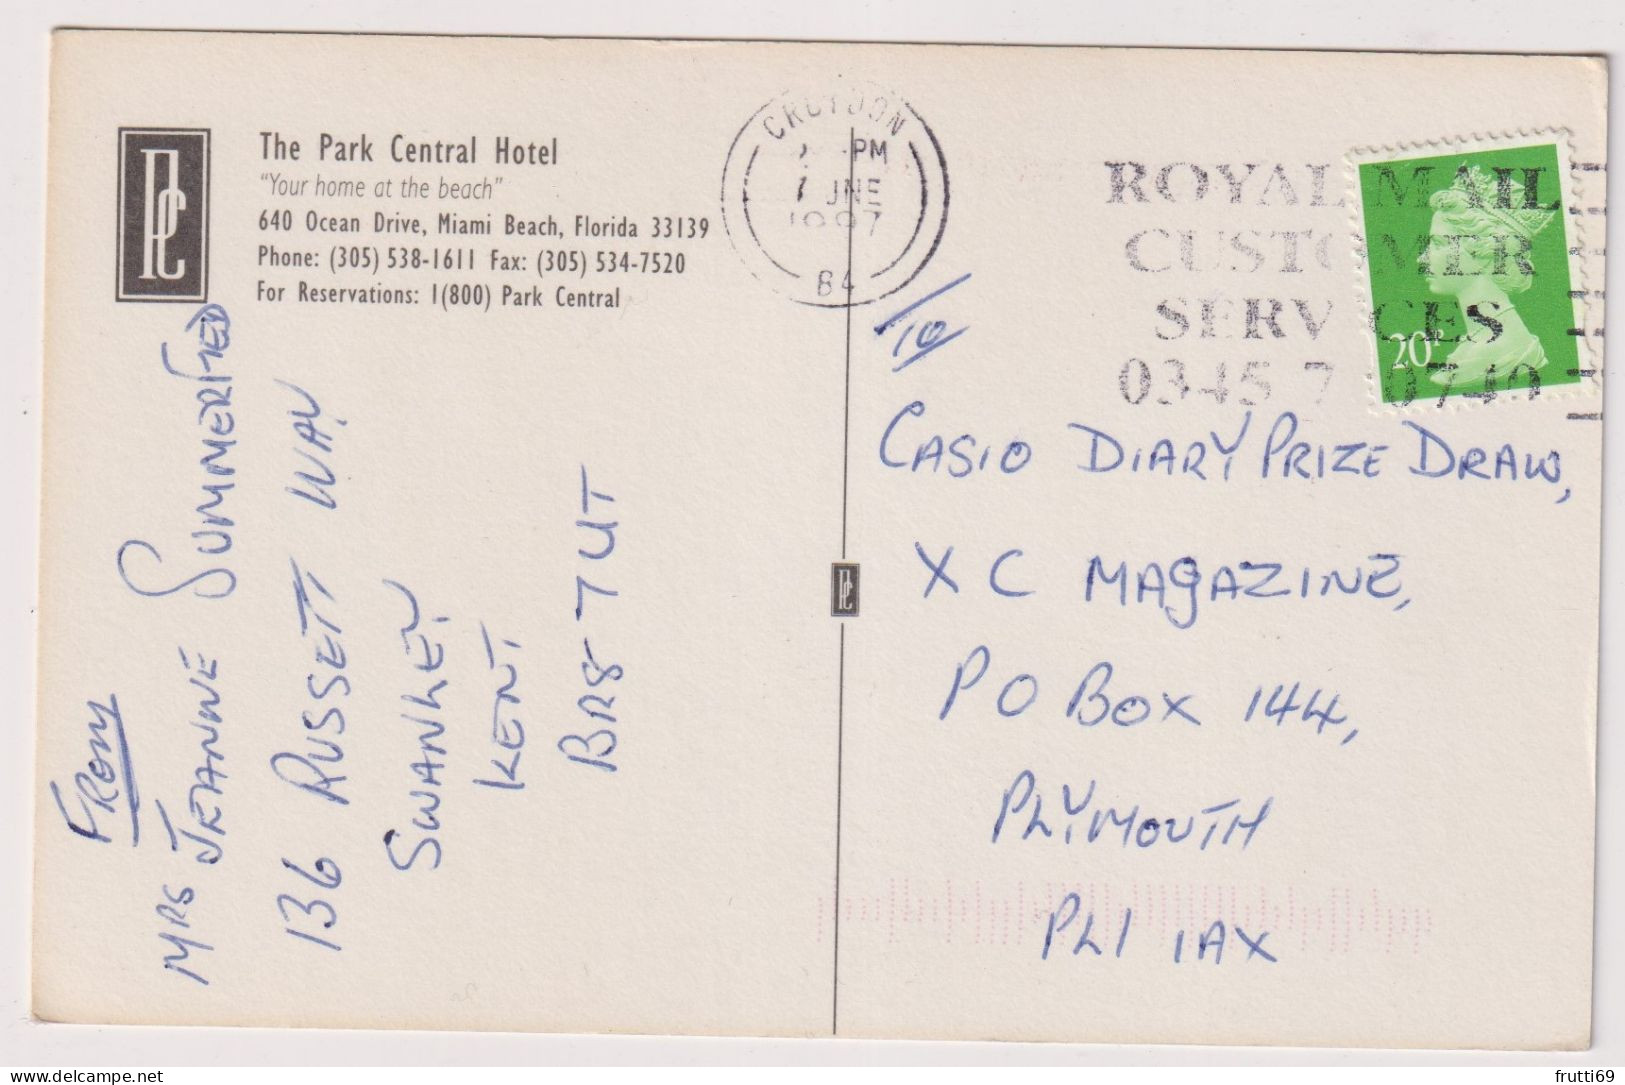 The Park Central Hotel
"Your home at the beach"
640 Ocean Drive, Miami Beach, Florida 33139
Phone: (305) 538-1611 Fax: (305) 534-7520
For Reservations: 1(800) Park Central
PC
CROYDON
PM
JNE
1997
84
ROYAL MAIL
CUSTOMER
SERVICES
0345 7 0740
20P
/10
FROM
MRS JEANNE SUMMERFIELD
136 RUSSETT WAY
SWANLEY
KENT
BR8 7UT
CASIO DIARY PRIZE DRAW,
X C MAGAZINE,
PO BOX 144,
PLYMOUTH
PL1 1AX
PC
frutti69